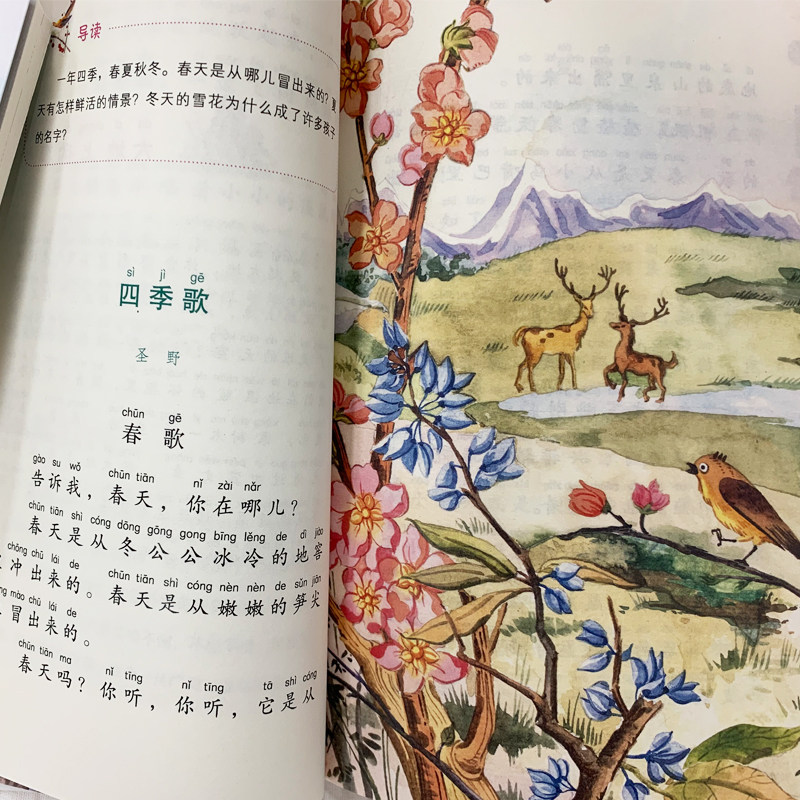 导读
一年四季，春夏秋冬。春天是从哪儿冒出来的？夏
天有怎样鲜活的情景？冬天的雪花为什么成了许多孩子
的名字？
sì jì gē
四季歌
圣野
chūn gē
春歌
gào su wǒ chūn tiān nǐ zài nǎr
告诉我，春天，你在哪儿？
chūn tiān shì cóng dōng gōng gong bīng lěng de dì jiào
春天是从冬公公冰冷的地窖
chōng chū lái de chūn tiān shì cóng nèn nèn de sǔn jiān
冲出来的。春天是从嫩嫩的笋尖
mào chū lái de
冒出来的。
chūn tiān ma nǐ tīng nǐ tīng tā shì cóng
春天吗？你听，你听，它是从